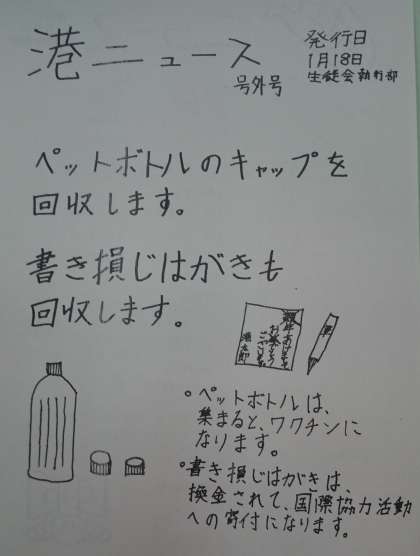 港ニュース
号外号
発行日
1月18日
生徒会執行部
ペットボトルのキャップを
回収します。
書き損じはがきも
回収します。
。ペットボトルは、
集まると、ワクチンに
なります。
。書き損じはがきは、
換金されて、国際協力活動
への寄付になります。